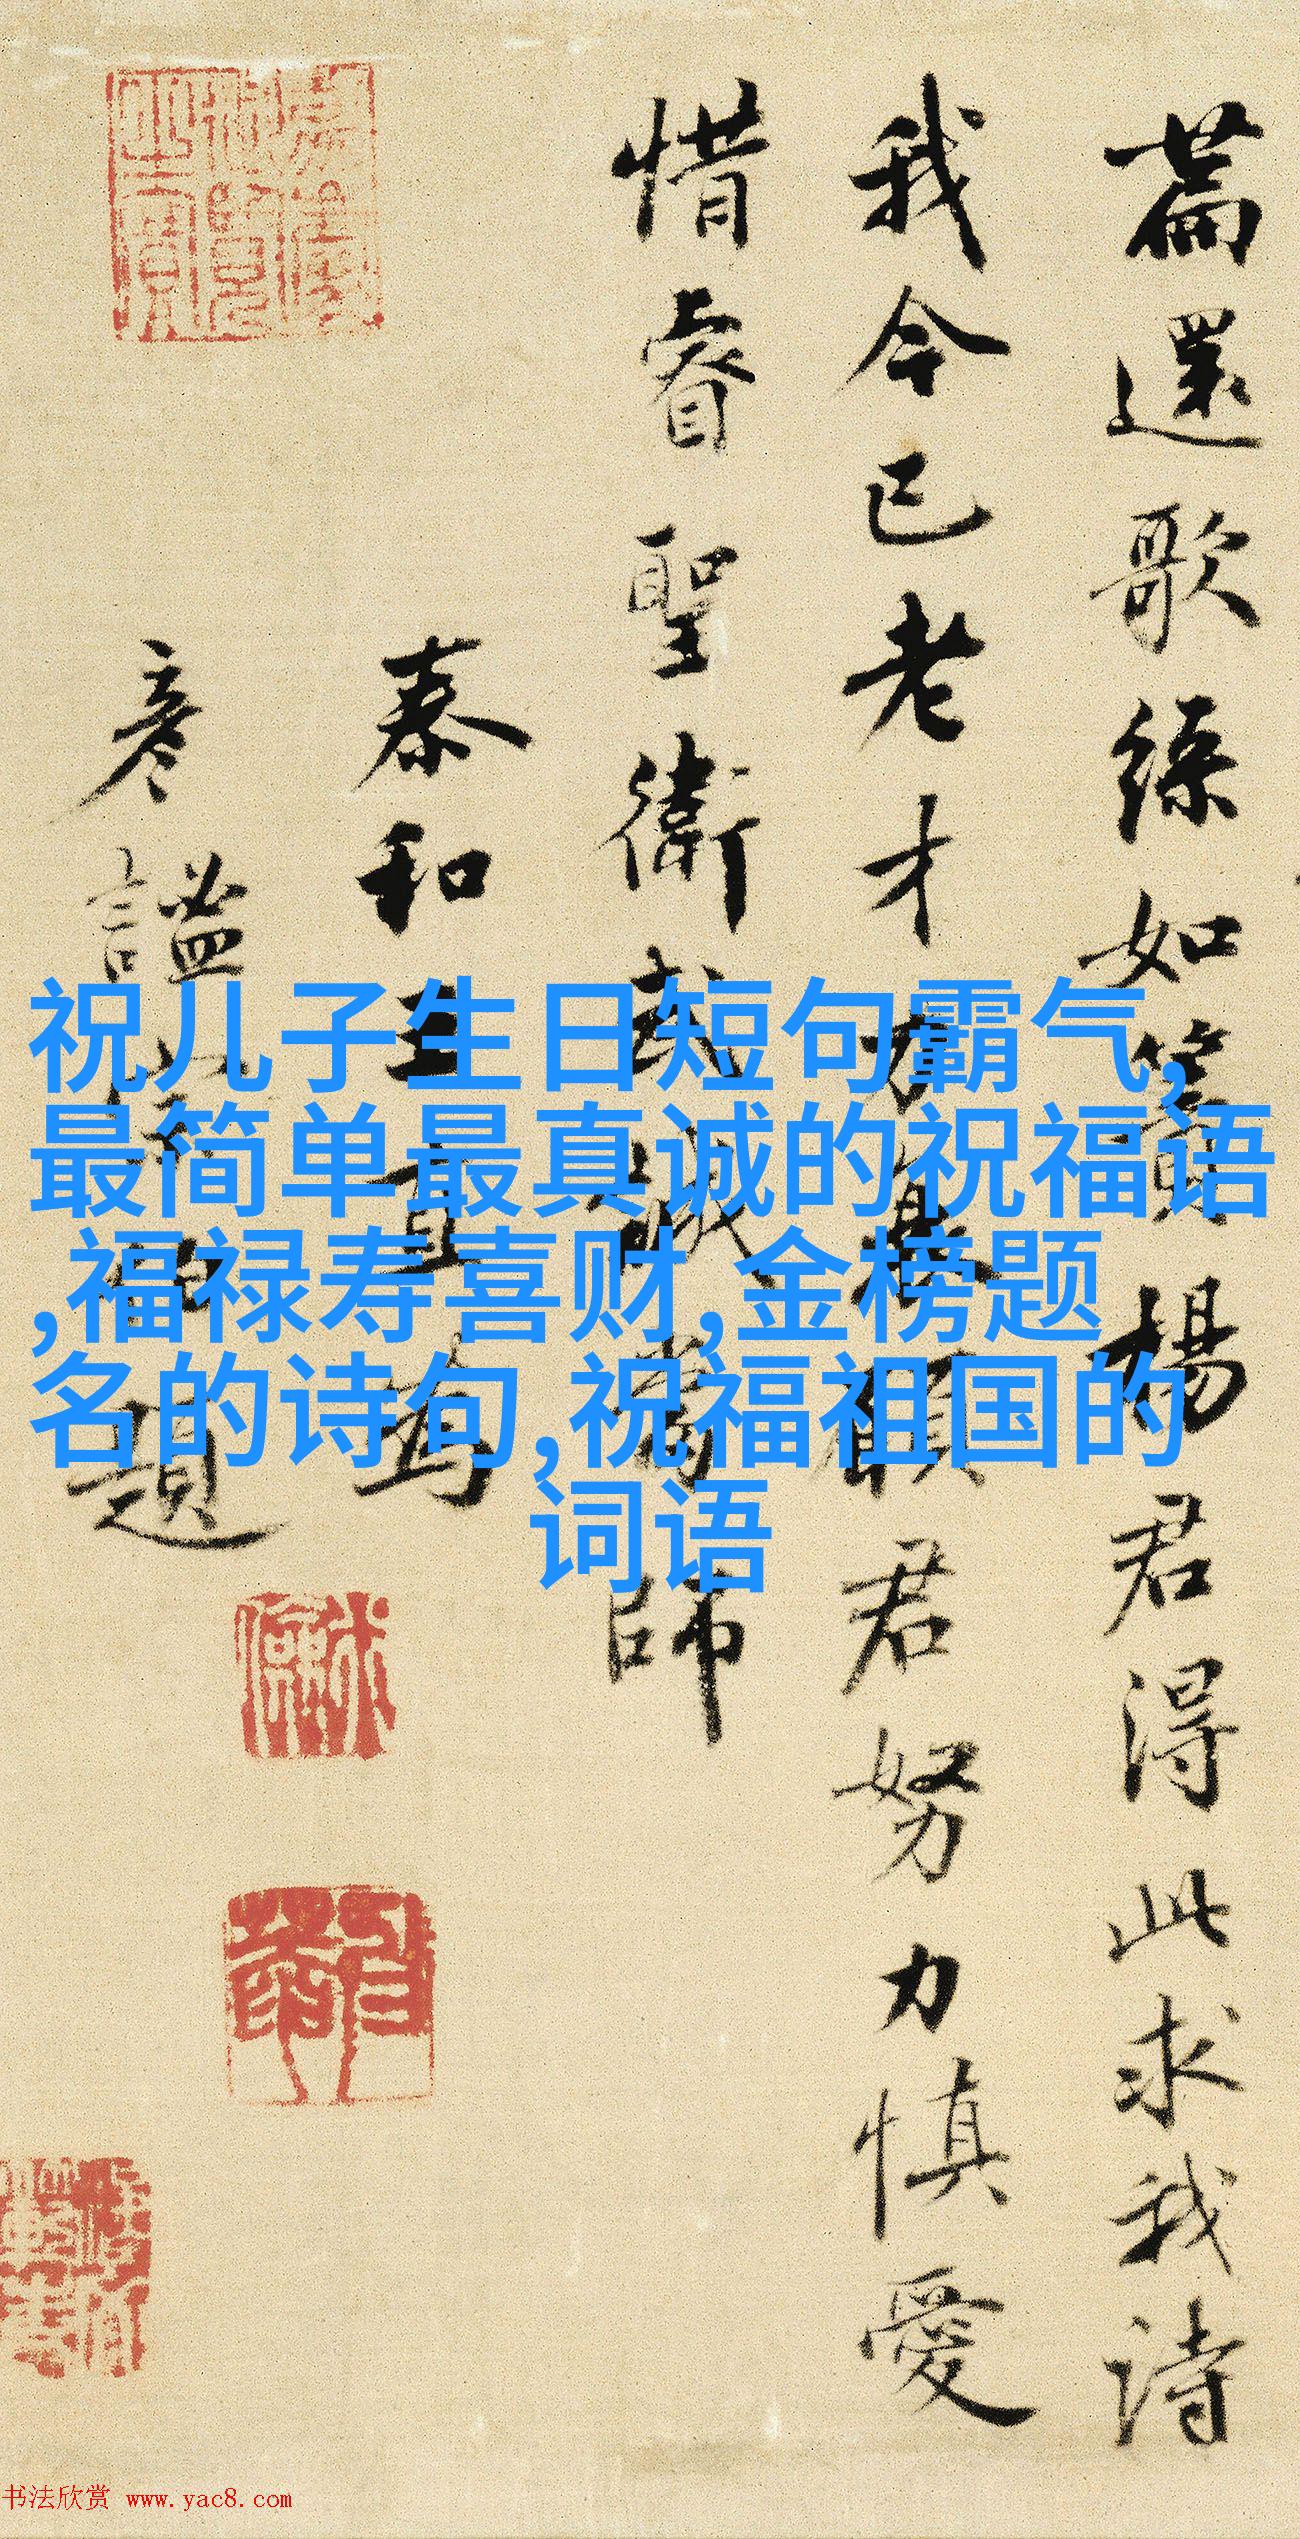 篇還歌紾如篔楊君得此求我詩
我今已老才力衰顧君努力慎愛
惜睿聖衛武誠當師
泰和王直為
彥謐
題
祝儿子生日短句霸气,
最简单最真诚的祝福语
,福禄寿喜财,金榜题
名的诗句,祝福祖国的
词语
书法欣赏 www.yac8.com